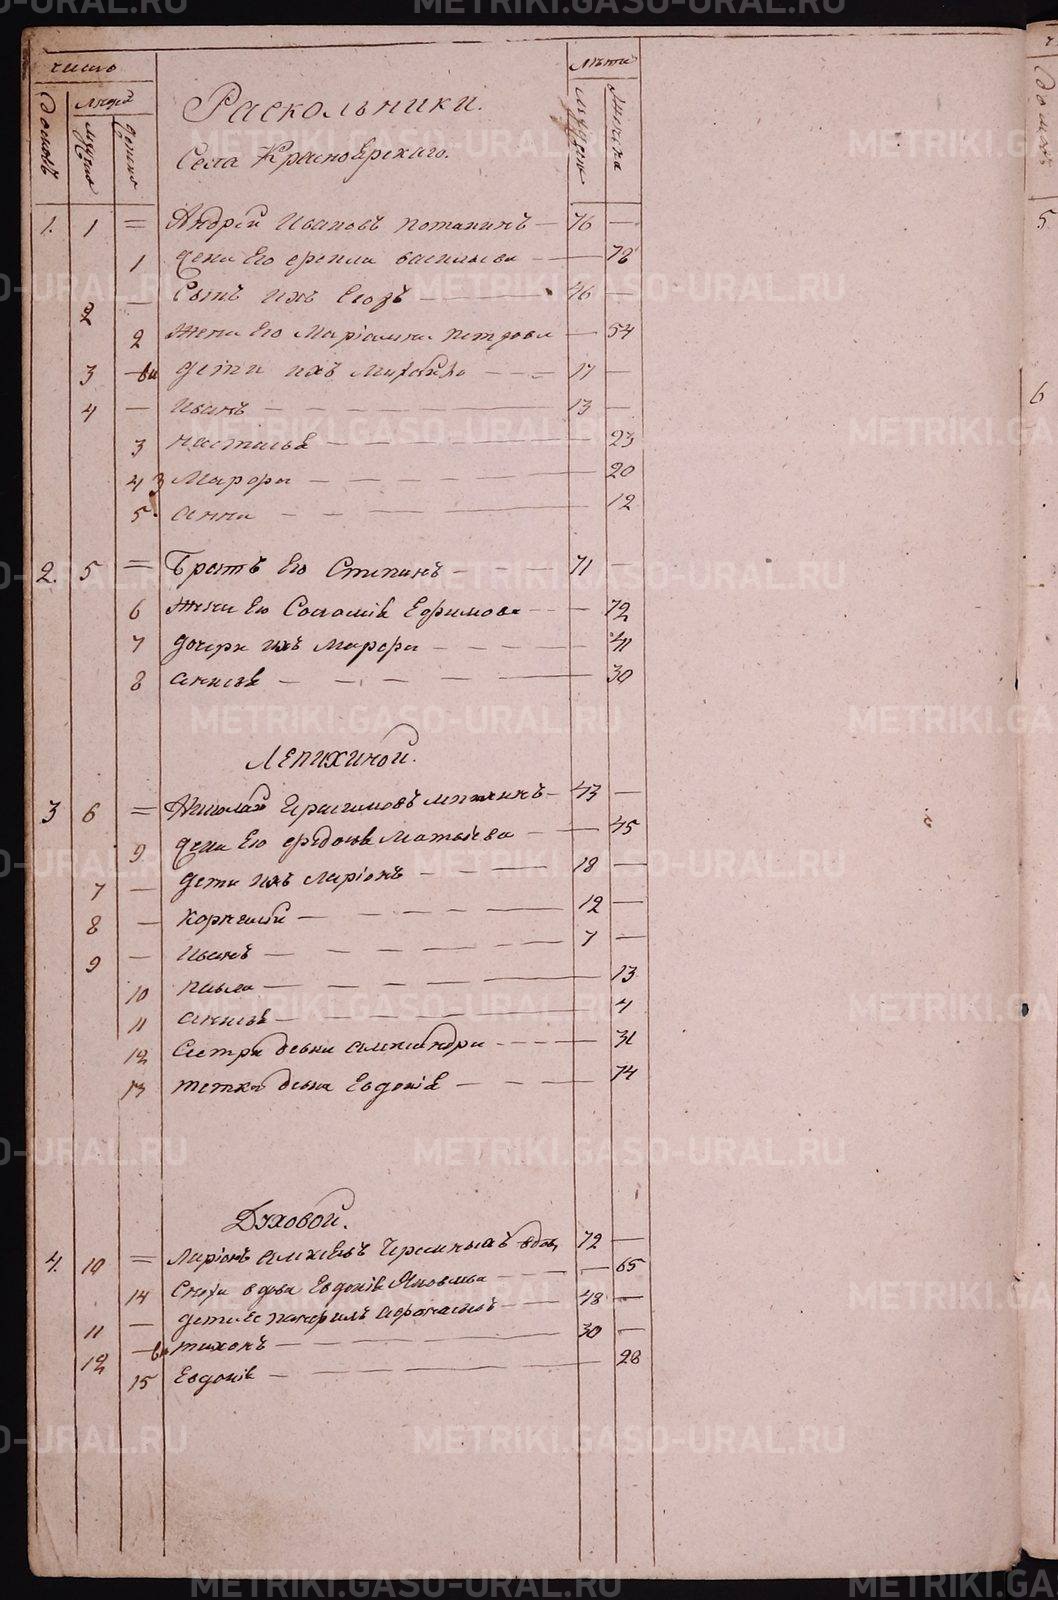 число
домовъ
людей
мужска
женска
лѣта
мужеск
женска
Раскольники.
Села Красноярскаго.
1. 1 = Андрей Ивановъ Потапинъ — 76 —
1 жена Его Васильева — — 78
2 — Сынъ ихъ Егоръ — 46 —
2 Жена Его Маріамна Петрова — 54
3 — дети ихъ — 17 —
4 — Иванъ — 13 —
3 Настасья — 23
4 Марфа — 20
5 Анна — 12
2. 5 = Братъ Его Степанъ — 71 —
6 Жена Его Соломія Ефимова — 72
7 дочери ихъ Марфа — 41
8 Анисья — 30
Лепихиной.
3 6 = Николай Герасимовъ — 43 —
9 жена Его Федосья Матвѣева — 45
7 — дети ихъ Ларіонъ — 18 —
8 — Корнилий — 12 —
9 — Иванъ — 7 —
10 Павла — 13
11 Анисья — 4
12 Сестра девка Александра — 31
13 тетка девка Евдокія — 74
Духовой.
4. 10 = Ларіонъ Алексѣевъ Черемныхъ вдов, 72 —
14 Сноха вдова Евдокія Яковлева — 65
11 — дети ее Панфилъ Афонасьевъ — 48 —
12 — Тихонъ — 30 —
15 Евдокія — 28
5
6
METRIKI.GASO-URAL.RU